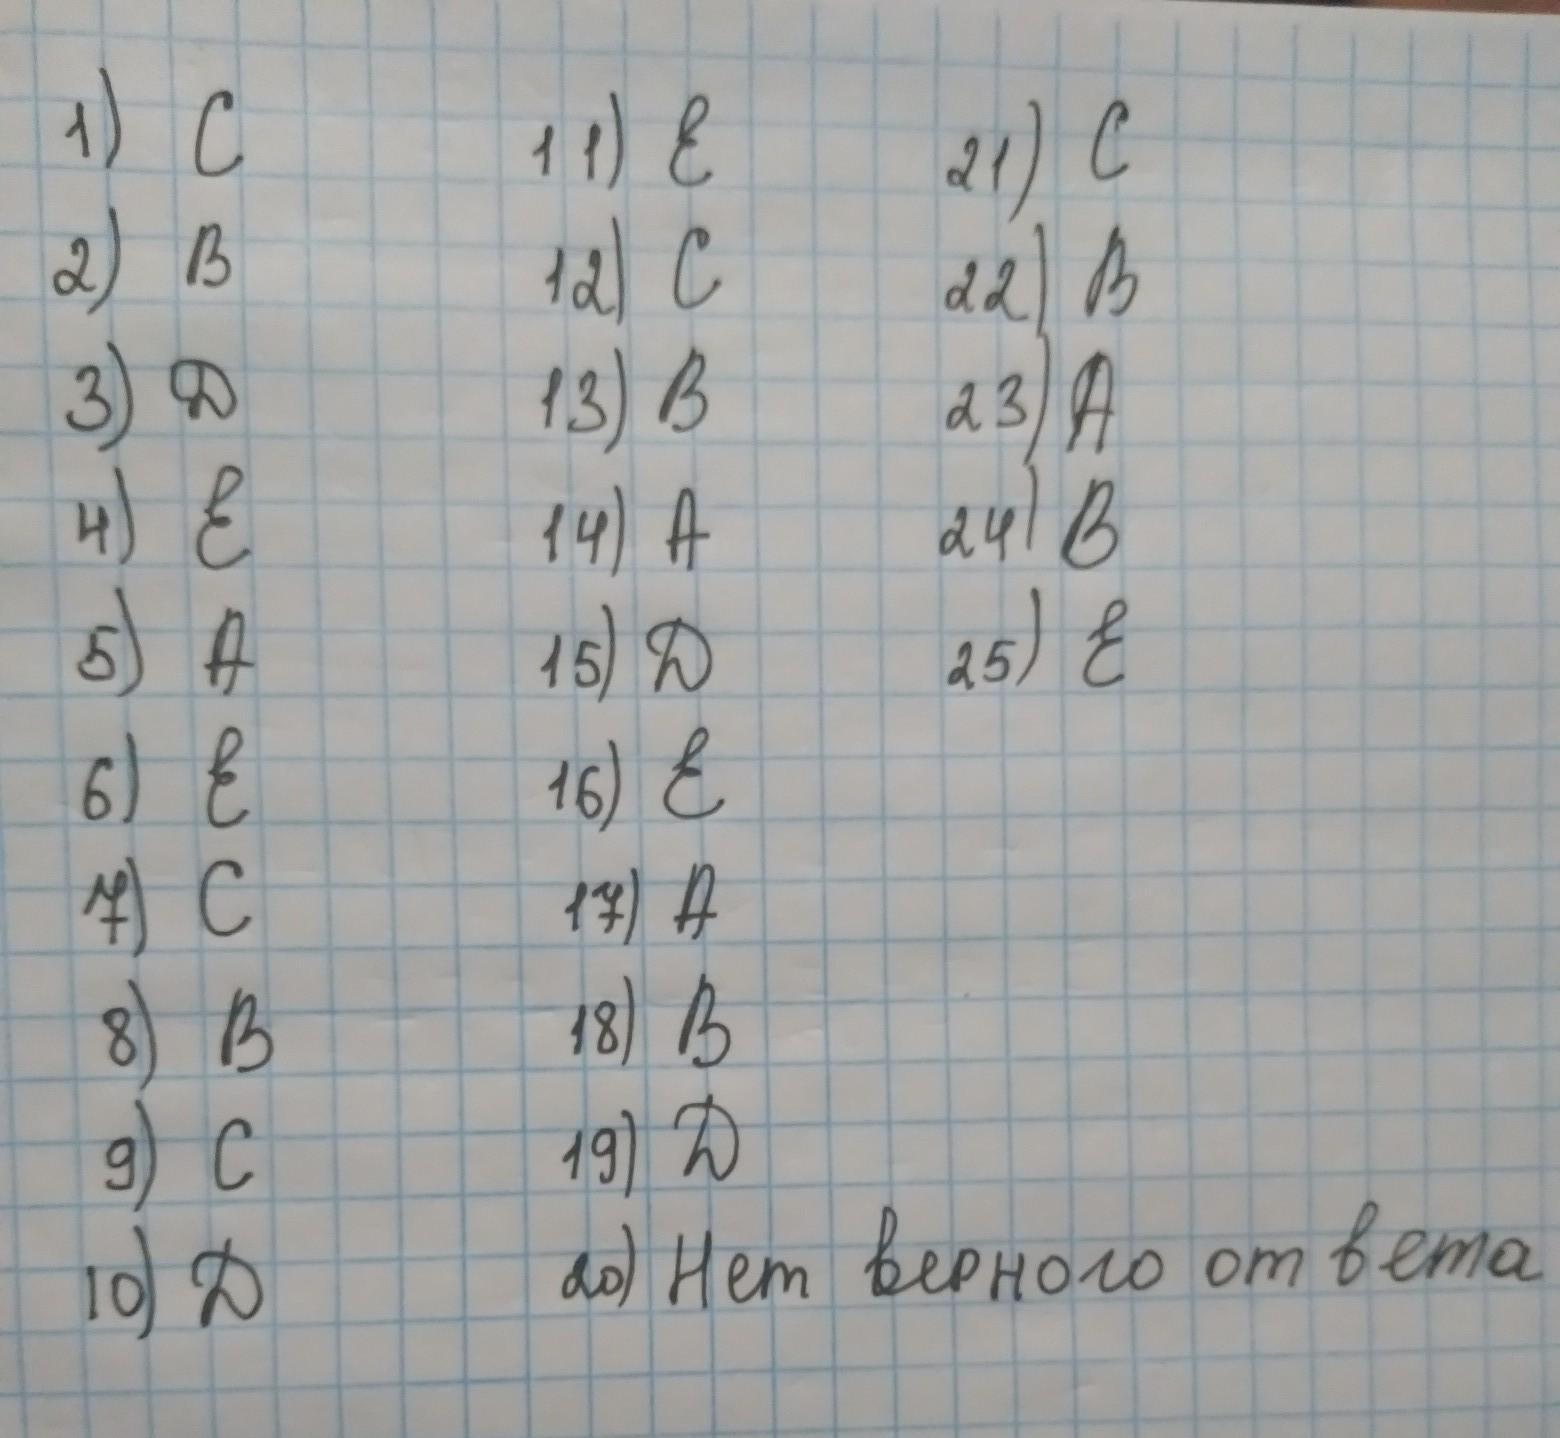 1) C
2) B
3) D
4) E
5) A
6) E
7) C
8) B
9) C
10) D
11) E
12) C
13) B
14) A
15) D
16) E
17) A
18) B
19) D
20) Нет верного ответа
21) C
22) B
23) A
24) B
25) E